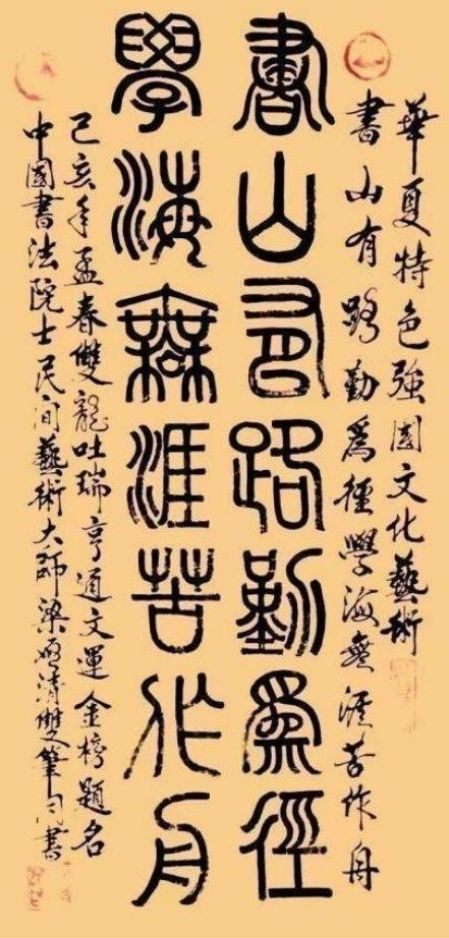 華夏特色強國文化藝術
書山有路勤為徑學海無涯苦作舟
書山有路勤為徑
學海無涯苦作舟
己亥年孟春雙龍吐瑞亨通文運金榜題名
中國書法院士民間藝術大師梁啟清雙筆同書